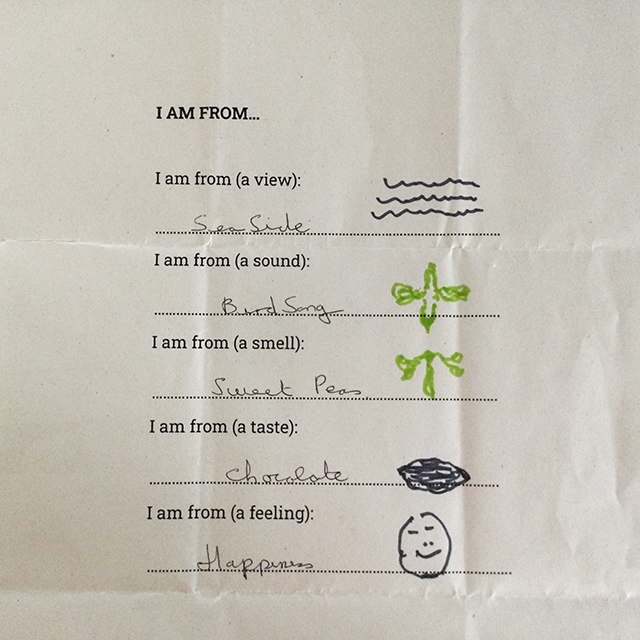 I AM FROM...
I am from (a view):
Sea Side
I am from (a sound):
Bird Song
I am from (a smell):
Sweet Peas
I am from (a taste):
Chocolate
I am from (a feeling):
Happiness